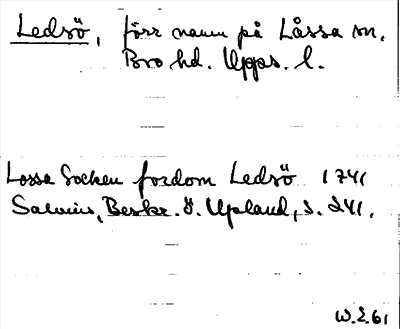 Ledsö, förr namn på Låssa sn,
Bro hd. Upps. l.
Lossa Socken fordom Ledsö 1741
Salvius, Beskr. ö. Upland, s. 241.
W.E.61